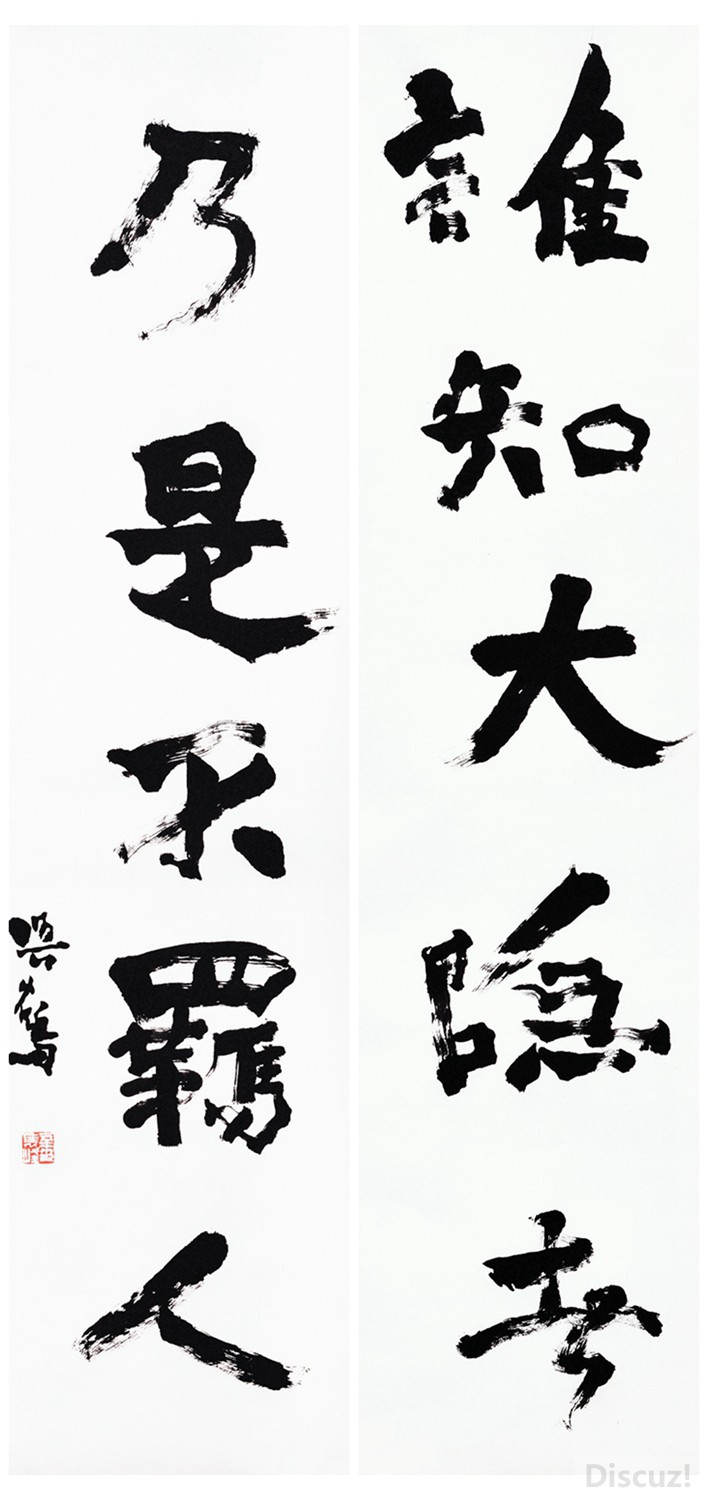 誰知大隐者
乃是不羈人
Discuz!